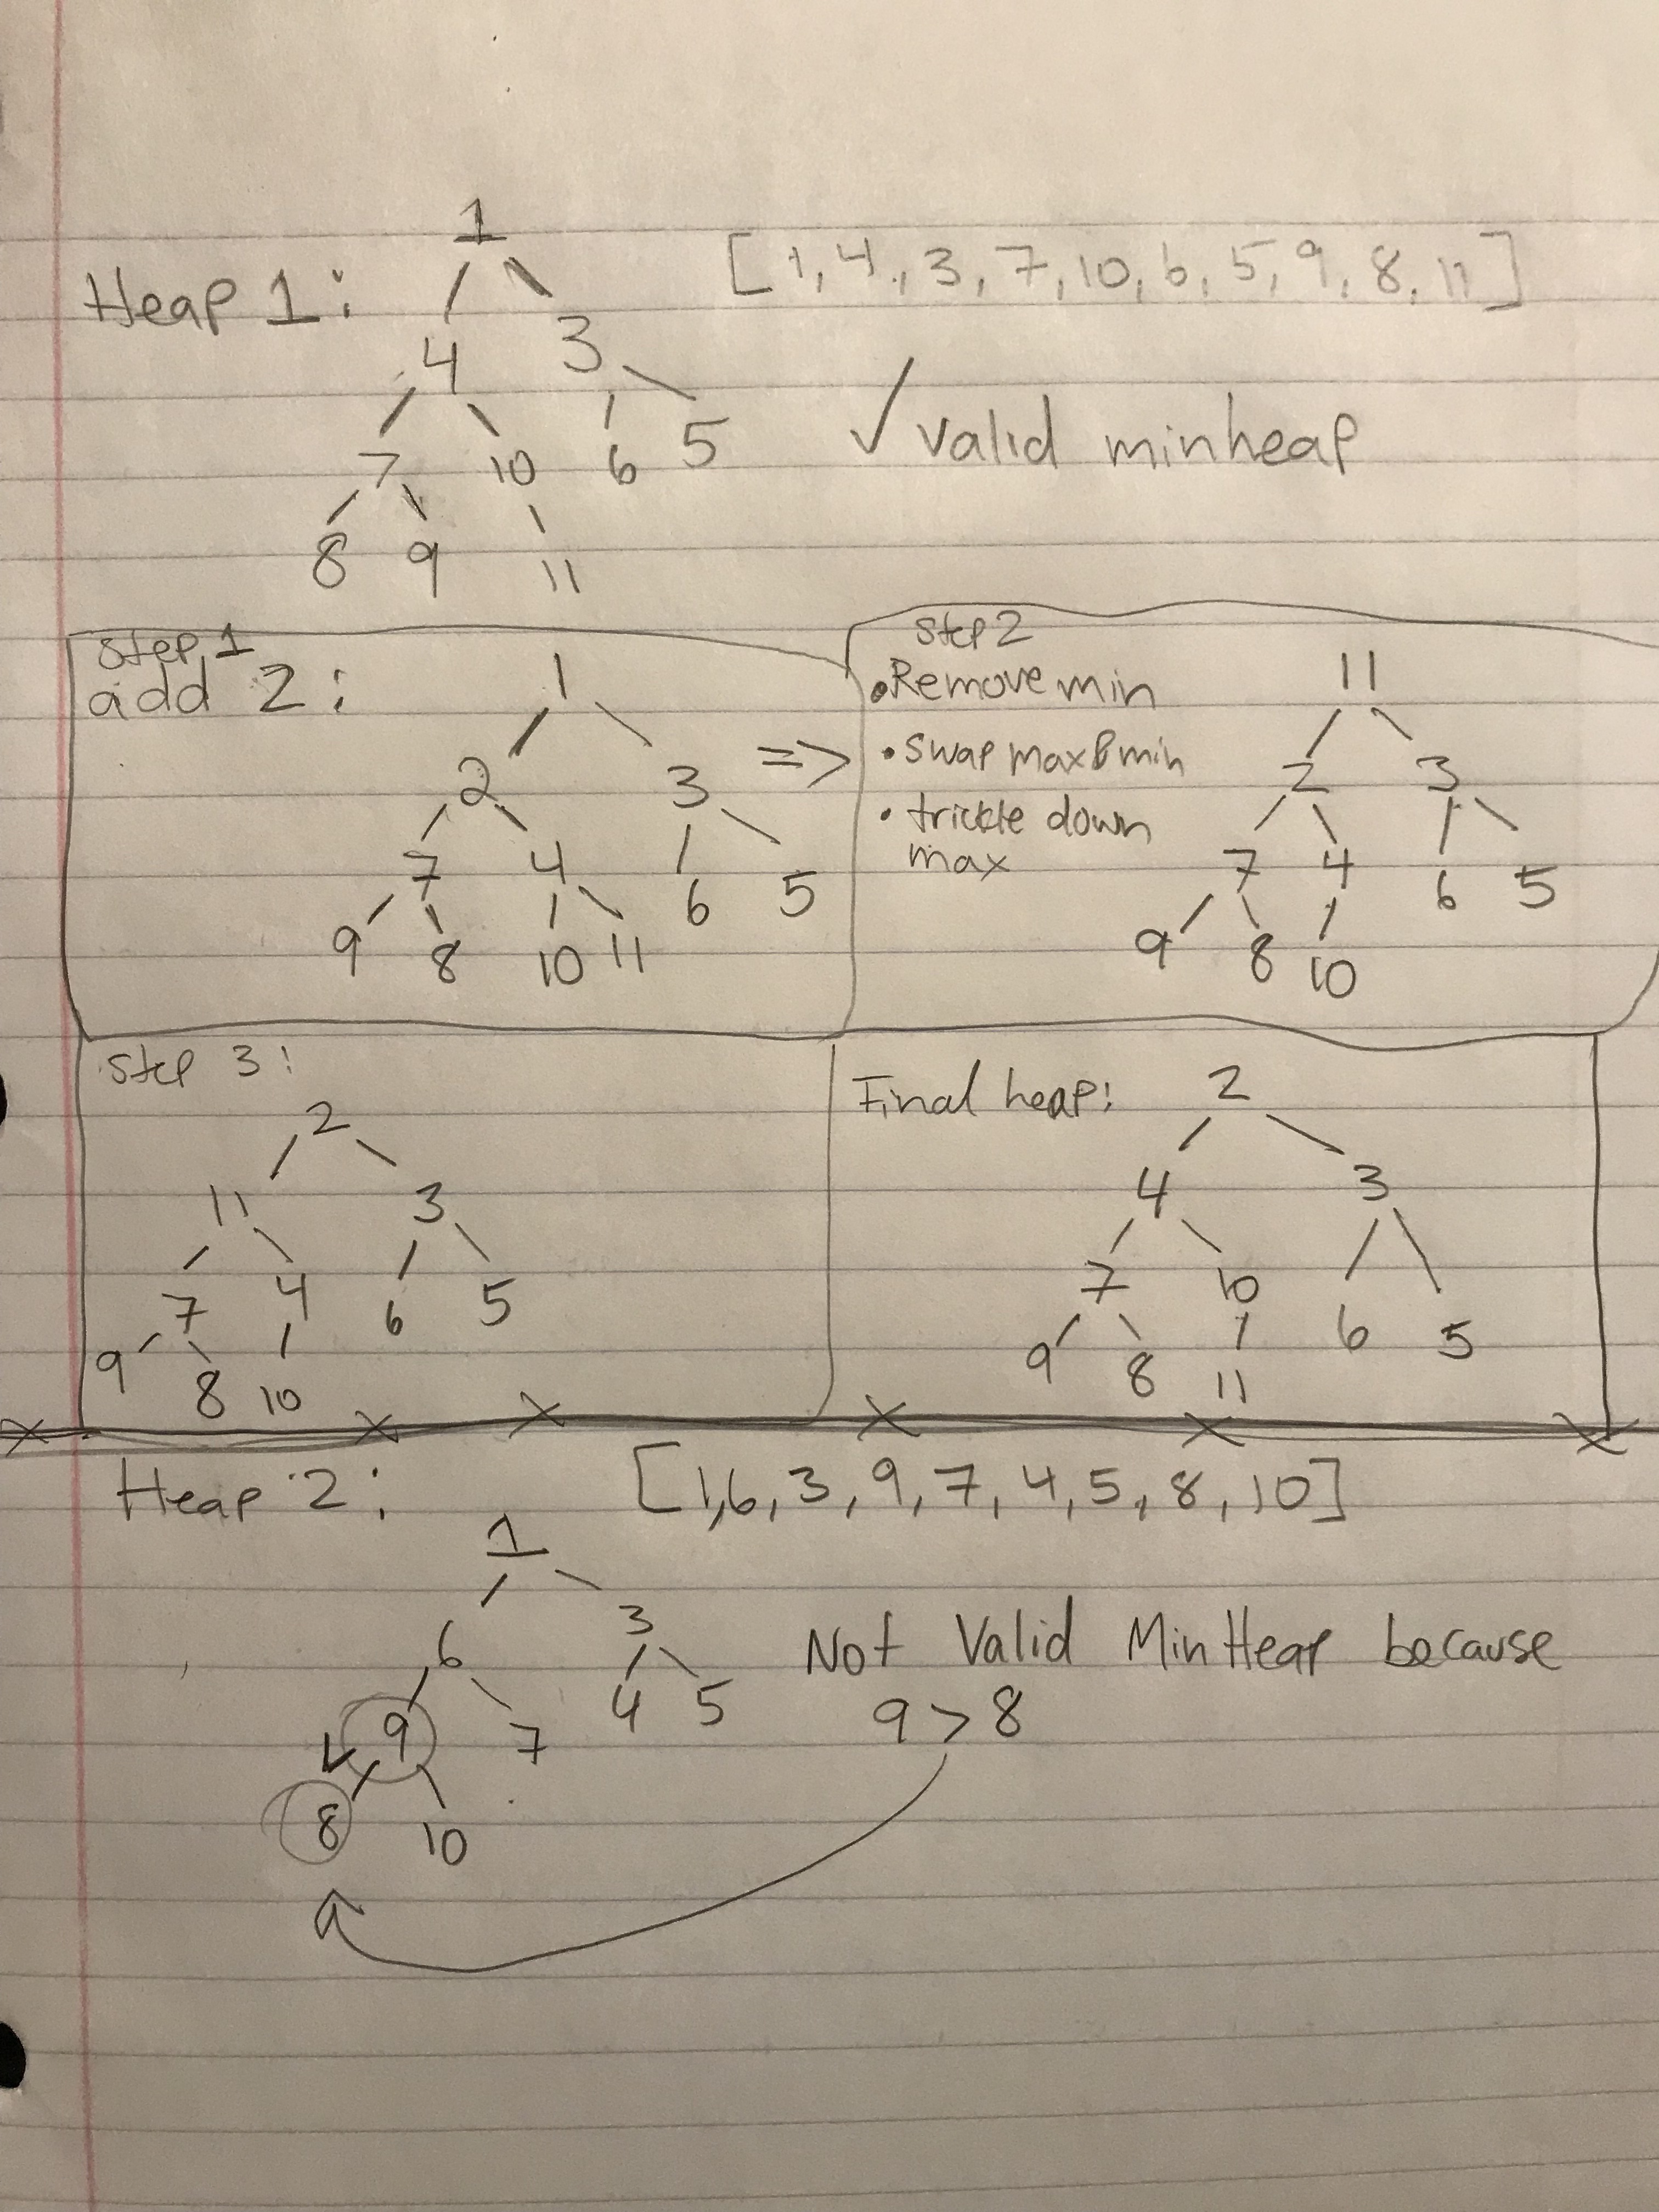 Heap 1:
[1, 4, 3, 7, 10, 6, 5, 9, 8, 11]
1
4 3
7 10 6 5
8 9 11
✓ valid minheap
step 1
add 2:
1
2 3
7 4 6 5
9 8 10 11
=>
step 2
• Remove min
• swap max & min
• trickle down
max
11
2 3
7 4 6 5
9 8 10
step 3:
2
11 3
7 4 6 5
9 8 10
Final heap:
2
4 3
7 10 6 5
9 8 11
Heap 2:
[1, 6, 3, 9, 7, 4, 5, 8, 10]
1
6 3
9 7 4 5
8 10
Not Valid MinHeap because
9 > 8